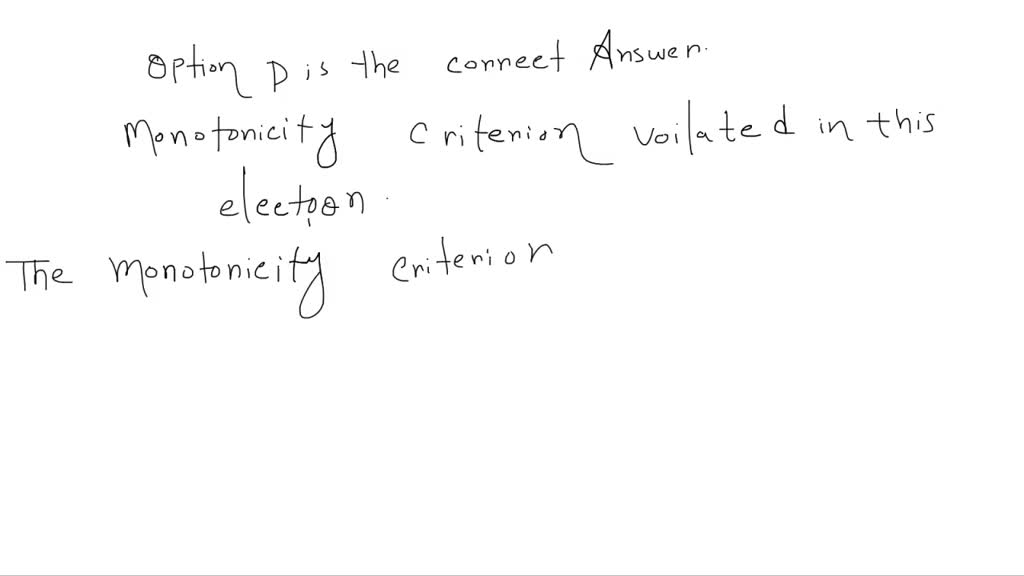 Option D is the correct Answer.
Monotonicity Criterion voilated in this
election.
The Monotonicity criterion